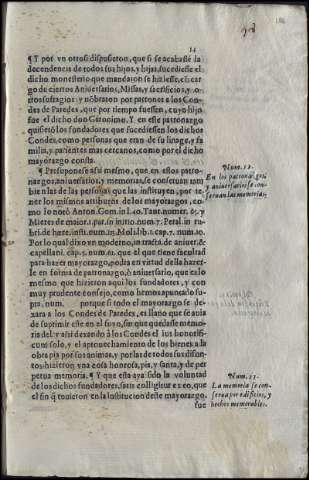 14
¶ Y por vn otrosi dispusieron, que si se acabasse la
decendencia de todos sus hijos, y hijas, sucediesse el
dicho monesterio que mandaron se hiziesse, cõ car-
go de ciertos Aniuersarios, Missas, y sacrificios, y o-
tros sufragios: y nõbraron por patrones a los Con-
des de Paredes, que por tiempo fuessen, cuyo hijo
fue el dicho don Geronimo. Y en este patronazgo
quisierõ los fundadores que sucediessen los dichos
Condes, como personas que eran de su linage, y fa-
milia, y parientes mas cercanos, como por el dicho
mayorazgo consta.
¶ Presuponese assi mismo, que en estos patro-
nazgos, aniuersarios, y memorias, se conseruan tam
bien las de las personas que las instituyen, por te-
ner los mismos attributos de los mayorazgos, co-
mo lo notò Anton. Gom. in l. 40. Taur. numer. 65. y
Mieres de maior. 1. par. in initio. num. 7. Peral. in ru-
bri. de here. insti. num. 15. Moli. lib. 1. cap. 7. num. 10.
Por lo qual dixo vn moderno, in tracta. de aniuer. &
capellani. cap. 5. num. 10. que el que tiene facultad
para hazer mayorazgo, podra en virtud della hazer-
le en forma de patronazgo, & aniuersario, que es lo
mesmo que hizieron aqui los fundadores, y con
muy prudente consejo, como hemos apuntado su-
pra, num. porque si todo el mayorazgo se de-
xara a los Condes de Paredes, es llano que se auia
de suprimir este en el suyo, sin que quedasse memo-
ria del: y assi dexando a los Condes el ius honorifi-
cum solo, y el aprouechamiento de los bienes a la
obra pia por sus animas, y por las de todos sus difun-
tos, hizieron vna cosa honrosa, pia, y santa, y de per
petua memoria. ¶ Y que esta aya sido la voluntad
de los dichos fundadores, satis colligitur ex eo, que
el fin q̃ tuuieron en la institucion deste mayorazgo,
fue
Num. 12.
En los patronazgos
y aniuersarios se con-
seruan las memorias.
Num. 13.
La memoria se con-
serua por edificios, y
hechos memorables.